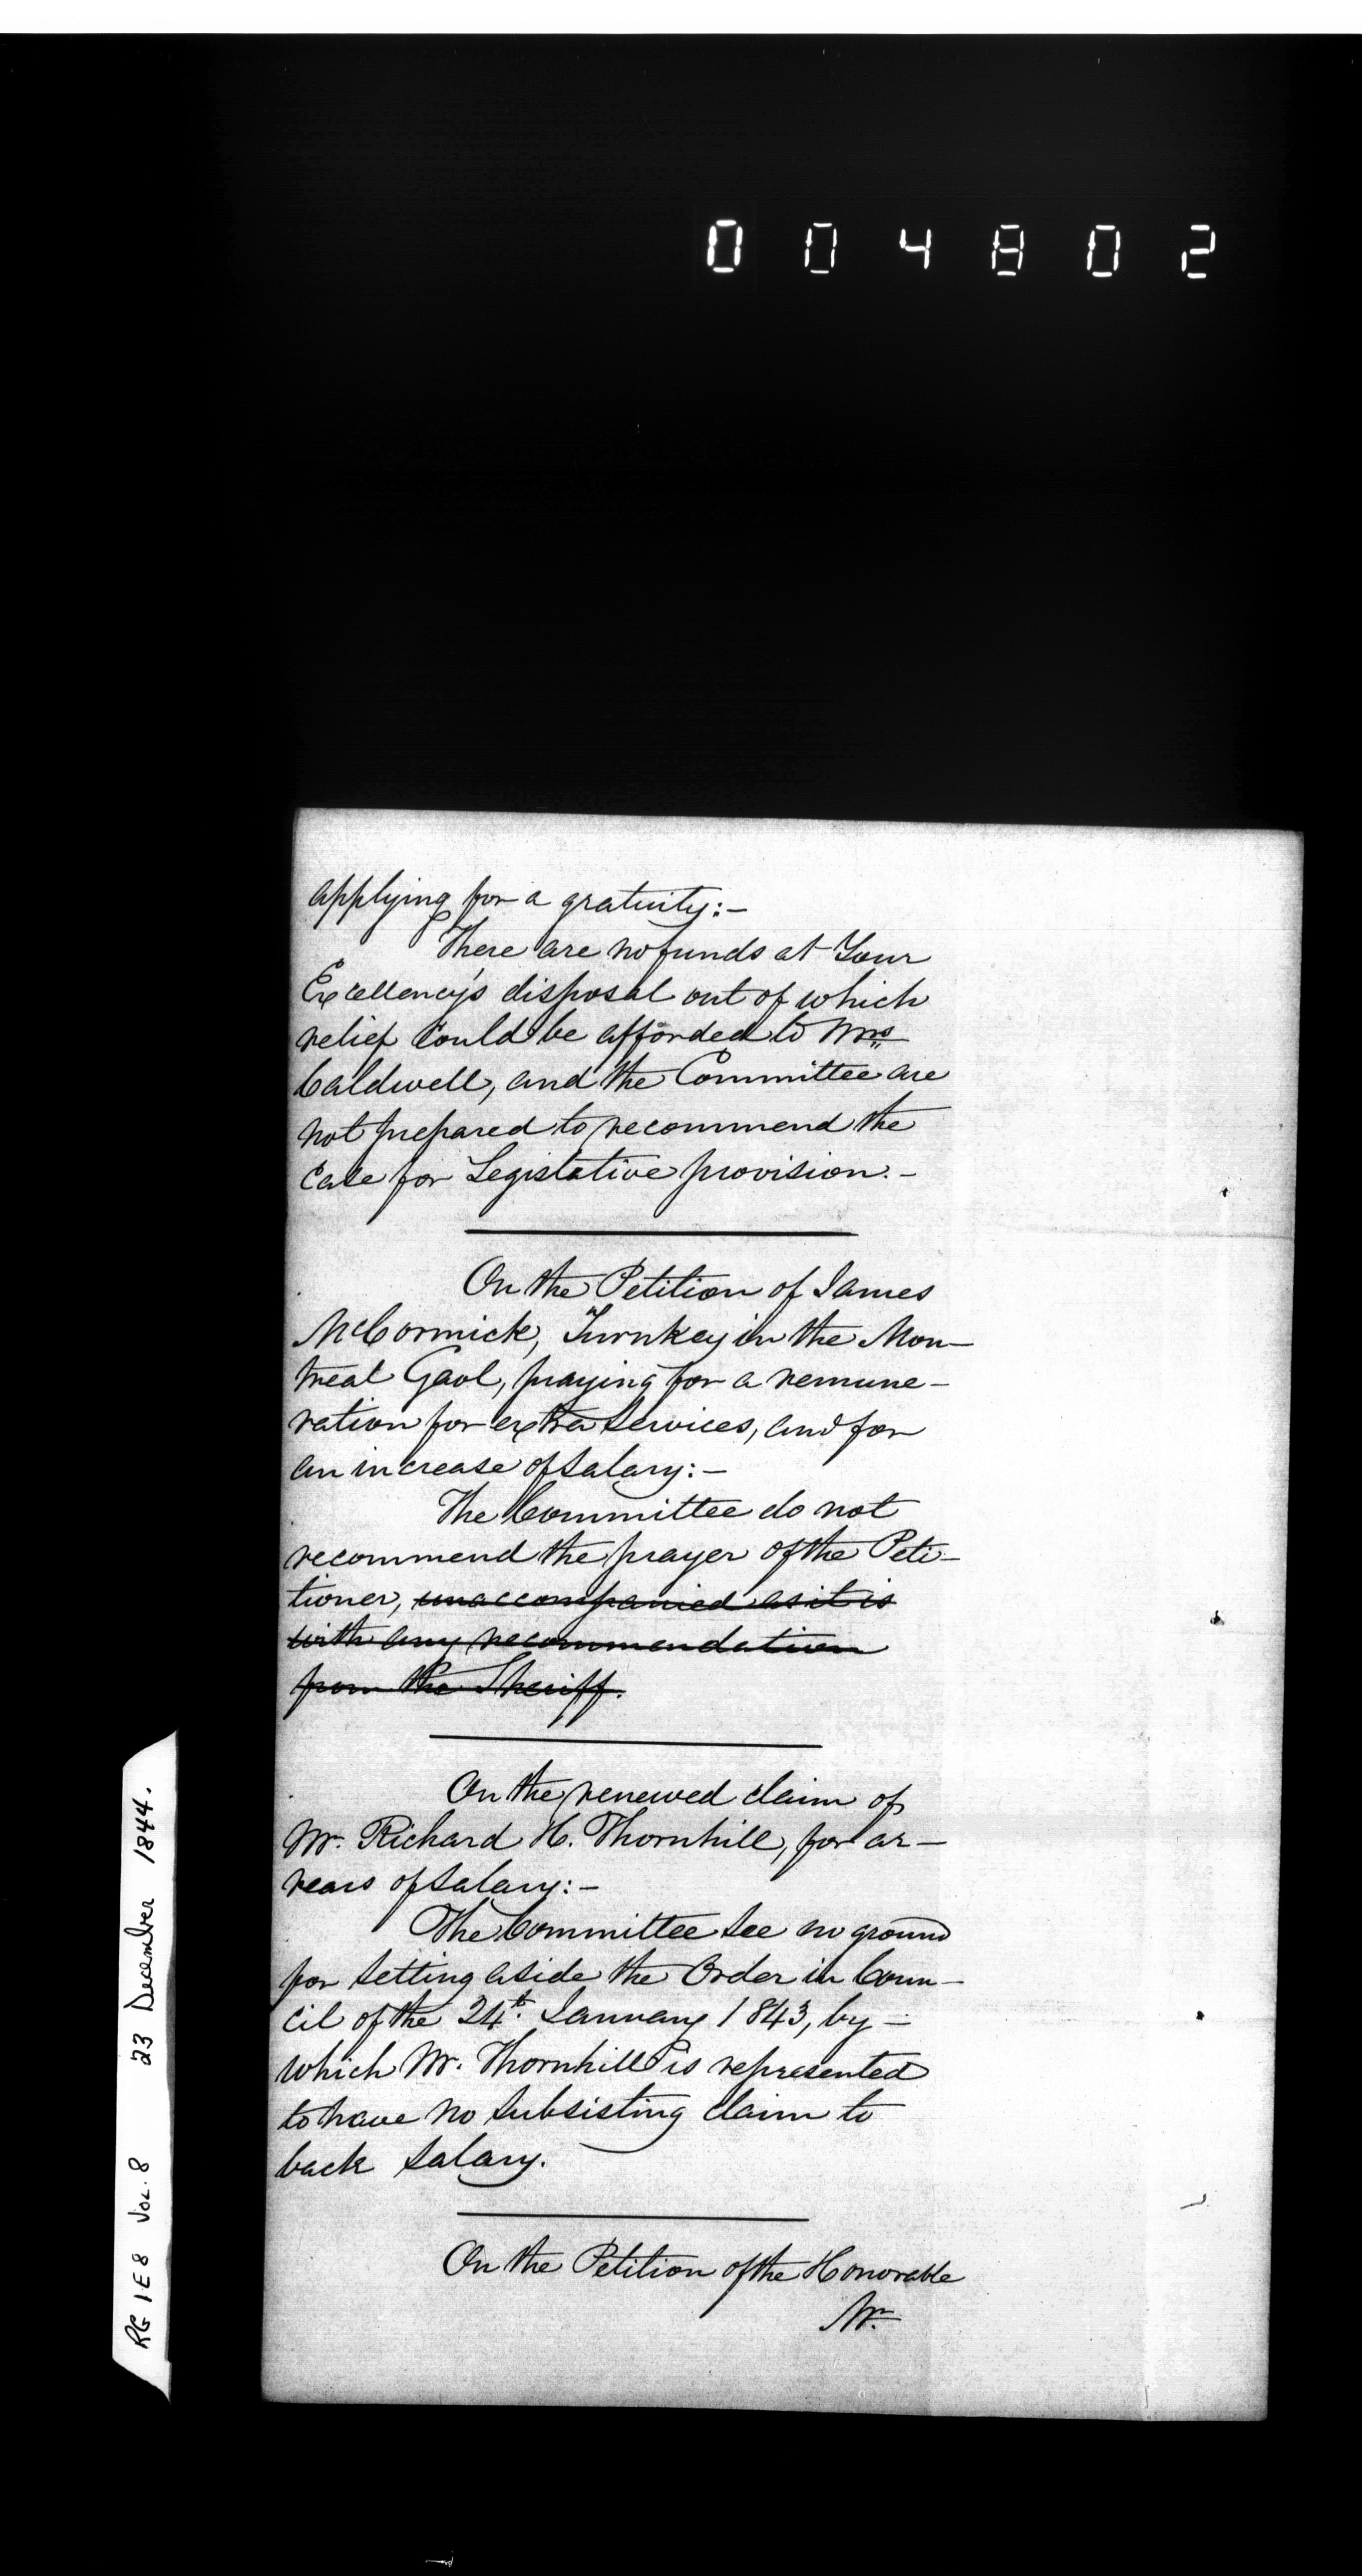 004802
applying for a gratuity:—
There are no funds at Your
Excellency's disposal out of which
relief could be afforded to Mrs
Caldwell, and the Committee are
not prepared to recommend the
case for Legislative provision.—
On the Petition of James
McCormick, Turnkey in the Mon—
treal Gaol, praying for a remune—
ration for extra services, and for
an increase of salary:—
The Committee do not
recommend the prayer of the Peti—
tioner, unaccompanied as it is
with any recommendation
from the Sheriff.
On the renewed claim of
Mr. Richard H. Thornhill, for ar—
rears of salary:—
The Committee see no ground
for setting aside the Order in Coun—
cil of the 24th. January 1843, by—
which Mr. Thornhill is represented
to have no subsisting claim to
back salary.
On the Petition of the Honorable
Mr.
RG 1 E 8 Vol. 8 23 December 1844.